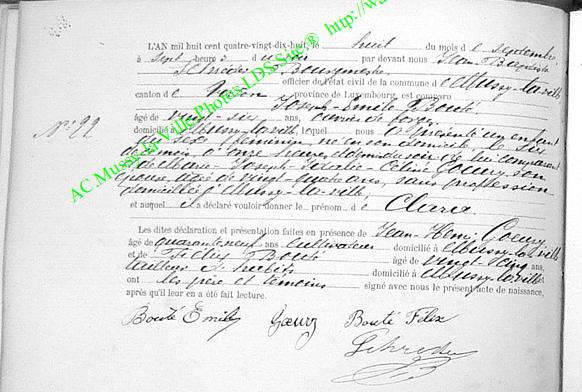 L'AN mil huit cent quatre-vingt-dix-huit, le huit du mois de septembre
à sept heures par devant nous Jean Baptiste
Bourgmestre officier de l'état civil de la commune d Mussy-la-ville
canton de province de Luxembourg, est comparu
Nº 99
Joseph-Emile Bouté
âgé de vingt-six ans, ouvrier de forges
domicilié à Mussy-la-ville, lequel nous a présenté un enfant
de sexe féminin né en son domicile, le six
de mois à onze heures du soir de lui comparant
et de Marie-Joseph Céline Goeury son
épouse âgée de vingt-quatre ans, sans profession
domiciliée à Mussy-la-ville
et auquel il a déclaré vouloir donner le prénom de Clara
Les dites déclaration et présentation faites en présence de Jean-Henri Goeury
âgé de quarante neuf ans cultivateur domicilié à Mussy-la-ville
et de Félix Bouté âgé de vingt-cinq ans,
tailleur d'habits domicilié à Mussy-la-ville
ont les père et témoins signé avec nous le présent acte de naissance,
après qu'il leur en a été fait lecture.
Bouté Emile Goeury Bouté Félix
AC.Mussy-la-Ville.Photos-LDS.Site® http://w